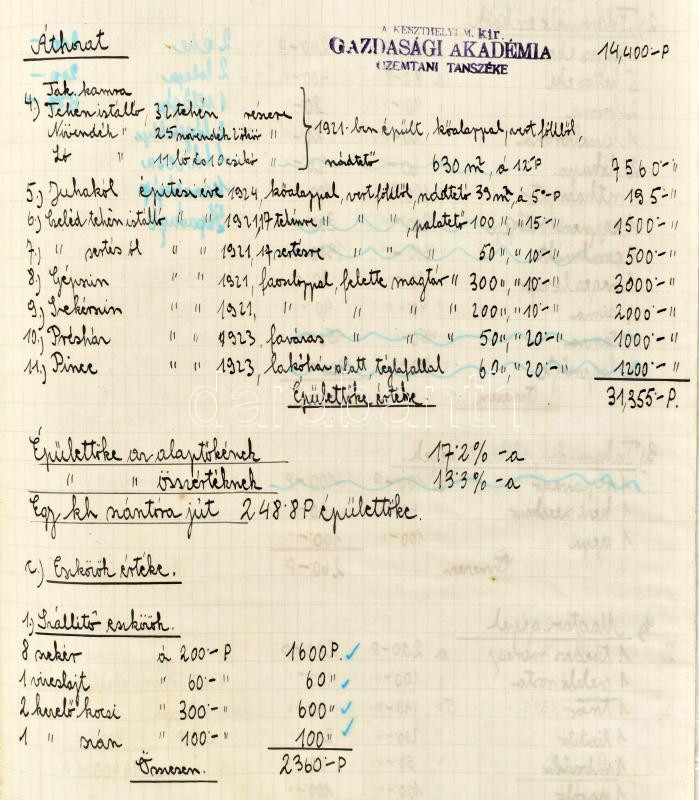 A KESZTHELYI M. kir.
Áthozat GAZDASÁGI AKADÉMIA 14,400·-P
ÜZEMTANI TANSZÉKE
Tak. kamra
4.) Tehénistálló, 32 tehén részére
Növendék " 25 növendék "
Ló " 11 ló és 10 csikó "
1921-ben épült, kőalappal, vert földből,
nádtető 630 m², á 12 P 7560·- "
5.) Juhakól építési éve 1924, kőalappal, vert földből, nádtető 39 m², á 5·-P 195·- "
6.) Cseléd tehénistálló " " 1921, 17 tehénre " " " , palatető 100 " , " 15·- " 1500·- "
7.) " sertés ól " " 1921, 17 sertésre " " " 50 " , " 10·- " 500·- "
8.) Gépszin " " 1921, faoszloppal, felette magtár " 300 " , " 10·- " 3000·- "
9.) Szekérszin " " 1921, " " " " 200 " , " 10·- " 2000·- "
10.) Présház " " 1923, favázas " " 50 " , " 20·- " 1000·- "
11.) Pince " " 1923, lakóház alatt téglafallal 60 " , " 20·- " 1200·- "
Épülettőke értéke. 31,355·-P.
darabanth
Épülettőke az alaptőkének 17·2%-a
" " összértéknek 13·3%-a
Egy kh szántóra jut 248·8 P épülettőke.
c.) Eszközök értéke.
1.) Szállító eszközök.
8 szekér á 200·-P 1600 P.
1 vizeslajt " 60·- " 60 "
2 kerelő kocsi " 300·- " 600 "
1 " szán " 100·- " 100 "
Összesen. 2360·-P